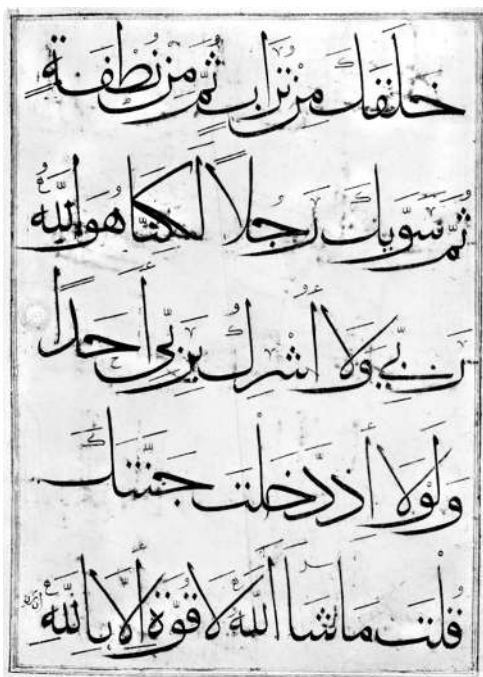 خَلَقَكَ مِنْ تُرَابٍ ثُمَّ مِنْ نُطْفَةٍ
ثُمَّ سَوَّيكَ رَجُلاً لٰكِنَّا هُوَ اللّٰهُ
رَبِّي وَلَا أُشْرِكُ بِرَبِّي أَحَدًا
وَلَوْلَا إِذْ دَّخَلْتَ جَنَّتَكَ
قُلْتَ مَا شَاءَ اللّٰهُ لَا قُوَّةَ إِلَّا بِاللّٰهِ